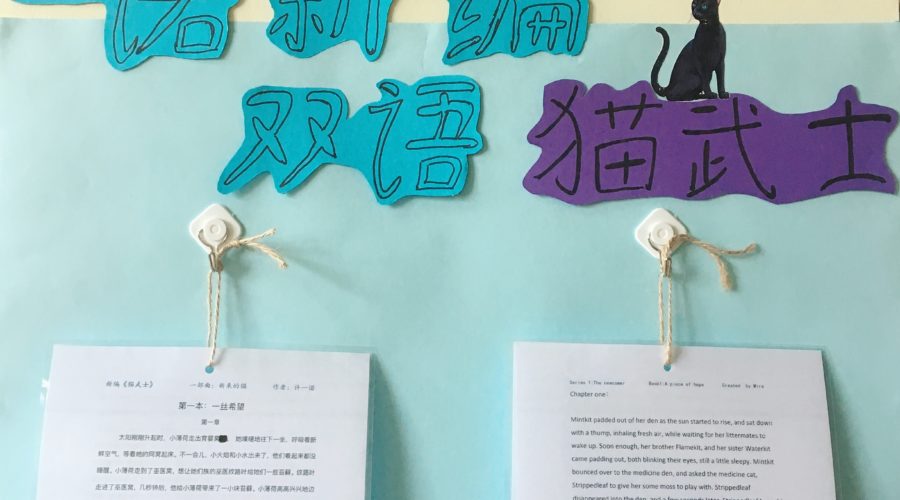 语新编
双语 猫武士
新编《猫武士》 一部曲:新来的猫 作者:许一诺
第一本:一丝希望
第一章
太阳刚刚升起时,小薄荷走出育婴窝 她噗嗵地往下一坐,呼吸着新
鲜空气,等着她的同窝起床。不一会儿,小火焰和小水出来了,他们看起来都没
睡醒。小薄荷走到了巫医窝,想让他们族的巫医纹路叶给她们一些苔藓。纹路叶
走进了巫医窝,几秒钟后,他给小薄荷带来了一小块苔藓。小薄荷高高兴兴地边
Series 1:The newcomer Book1:A piece of hope Created by Mira
Chapter one:
Mintkit padded out of her den as the sun started to rise, and sat down
with a thump, inhaling fresh air, while waiting for her littermates to
wake up. Soon enough, her brother Flamekit, and her sister Waterkit
came padding out, both blinking their eyes, still a little sleepy. Mintkit
bounced over to the medicine den, and asked the medicine cat,
Strippedleaf to give her some moss to play with. Strippedleaf
disappeared into the den, and a few seconds later, Strippedleaf